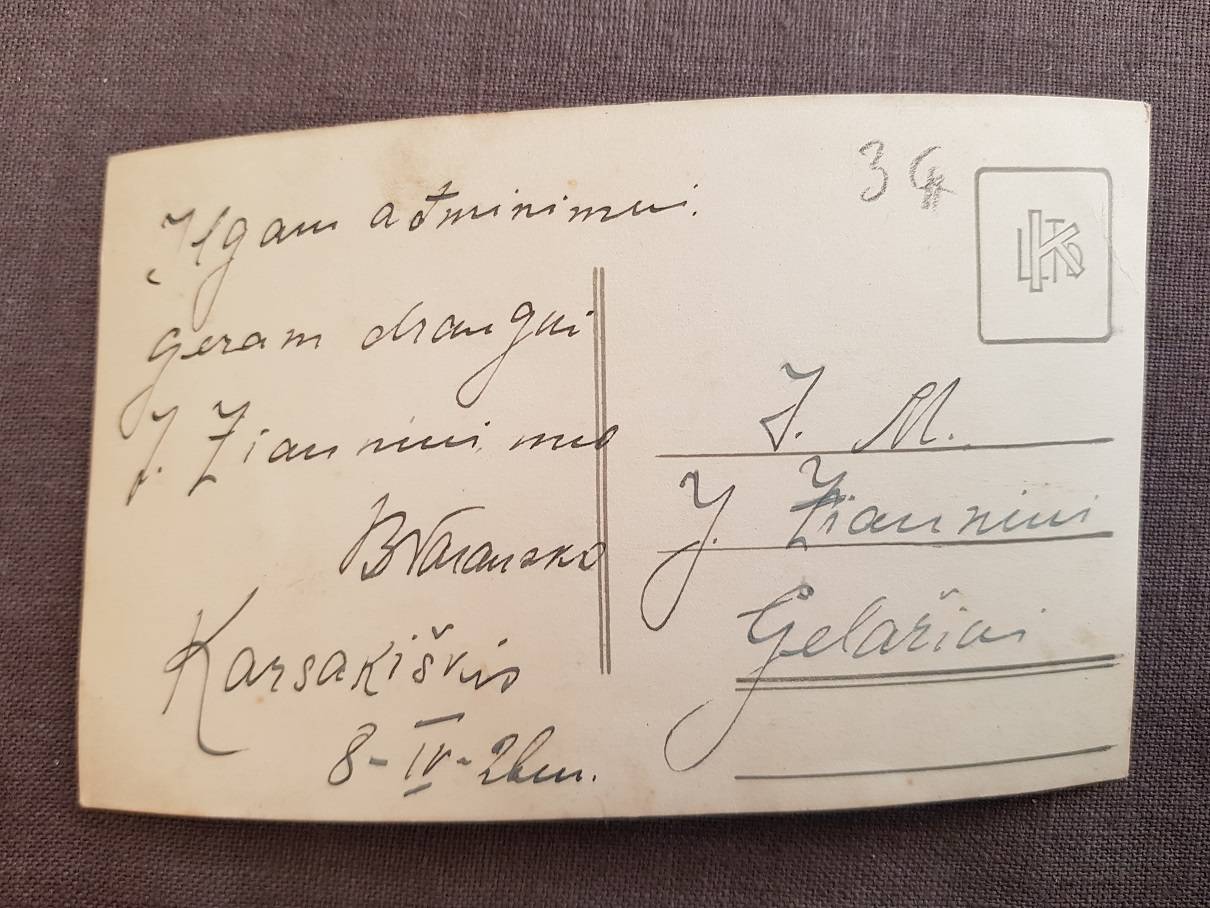 Ilgam atminimui.
geram draugui
J. Žiauniui nuo
Karsakiškis
8-IV-26m.
3
J. M.
J. Žiauniui
Gelažiai